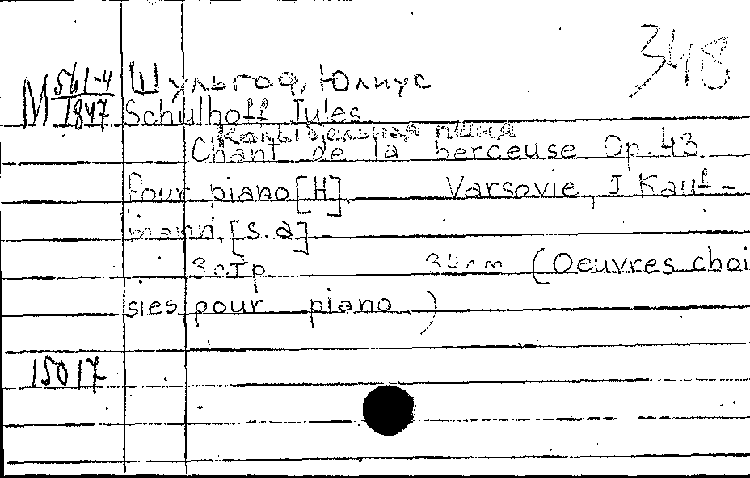 348
М 561-4/1847 Шульгоф, Юлиус
Schulhoff Jules
Колыбельная песня
Chant de la berceuse Op. 43
Pour piano [Н]. Varsovie, J. Kauf-
mann, [s.a]
3 стр. 34 cm (Oeuvres choi
sies pour piano)
15017